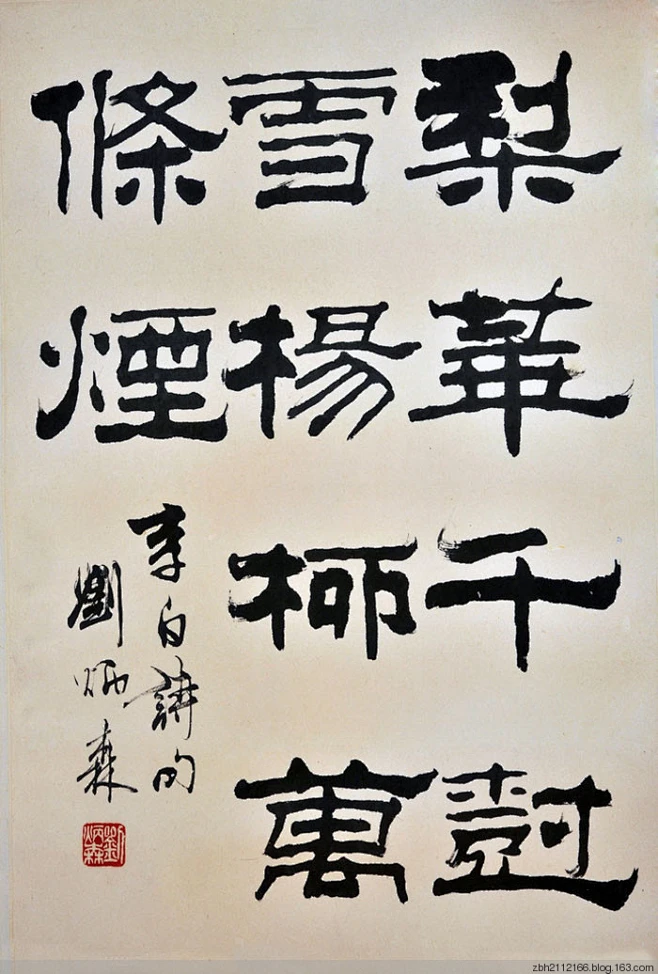 梨華千樹
雪楊柳萬
條煙
李白詩句
劉炳森
劉炳森
zbh2112166.blog.163.com